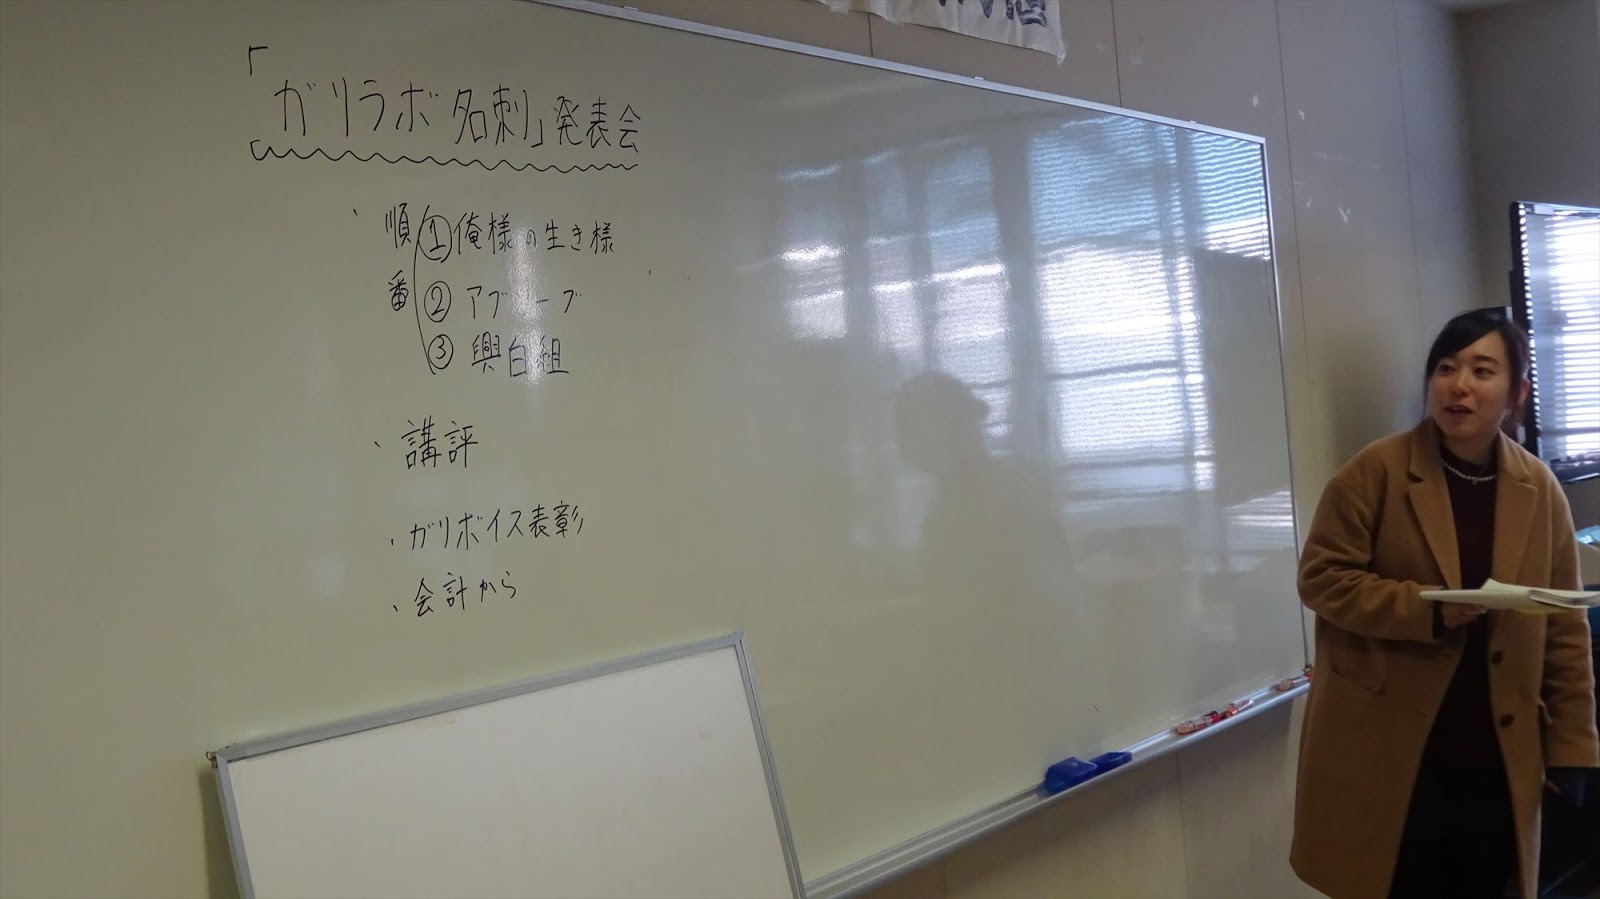 「ガリラボ名刺」発表会
・順番
①俺様の生き様
②アプ
③興白組
・講評
・ガリボイス表彰
・会計から